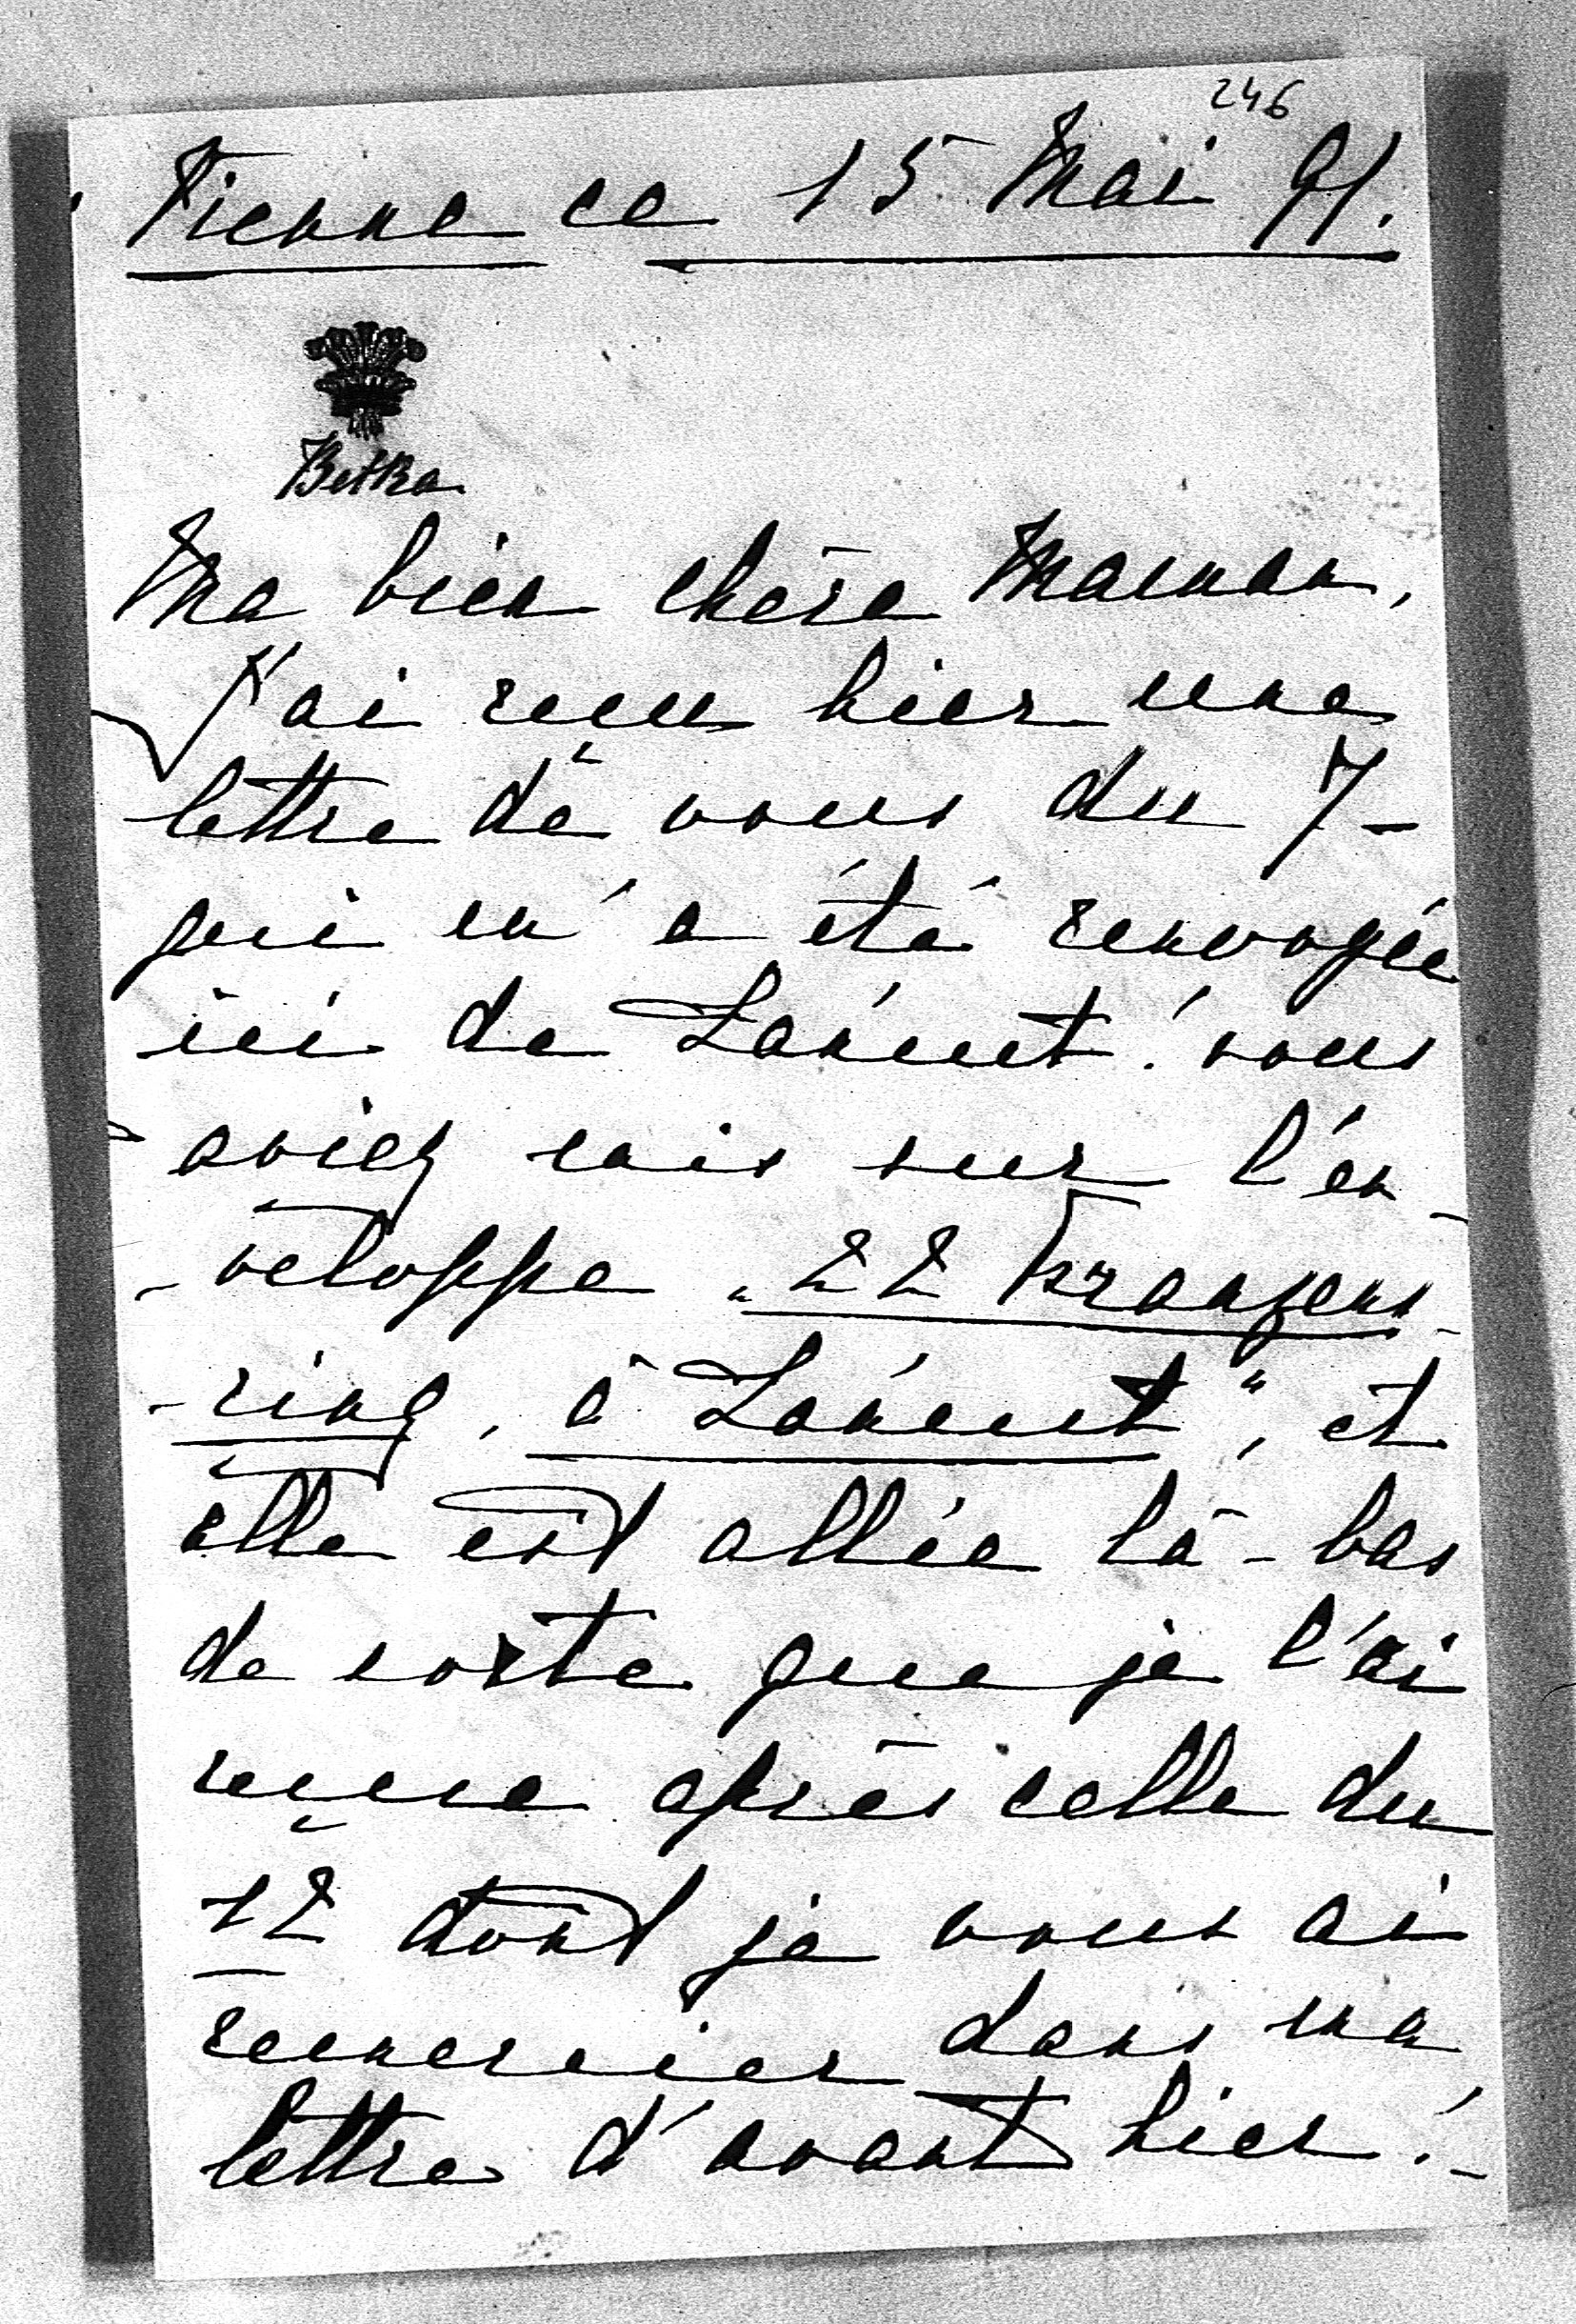 246
Vienne ce 15 Mai 91.
Betka
Ma bien chère Maman,
J'ai reçu hier une
lettre de vous du 7 -
qui m'a été renvoyée
ici de Łańcut! vous
aviez mis sur l'en-
-veloppe „22 Kranzens-
-ring, à Łańcut", et
elle est allée là-bas
de sorte que je l'ai
reçue après celle du
12 dont je vous ai
remercier dans ma
lettre d'avant hier! -